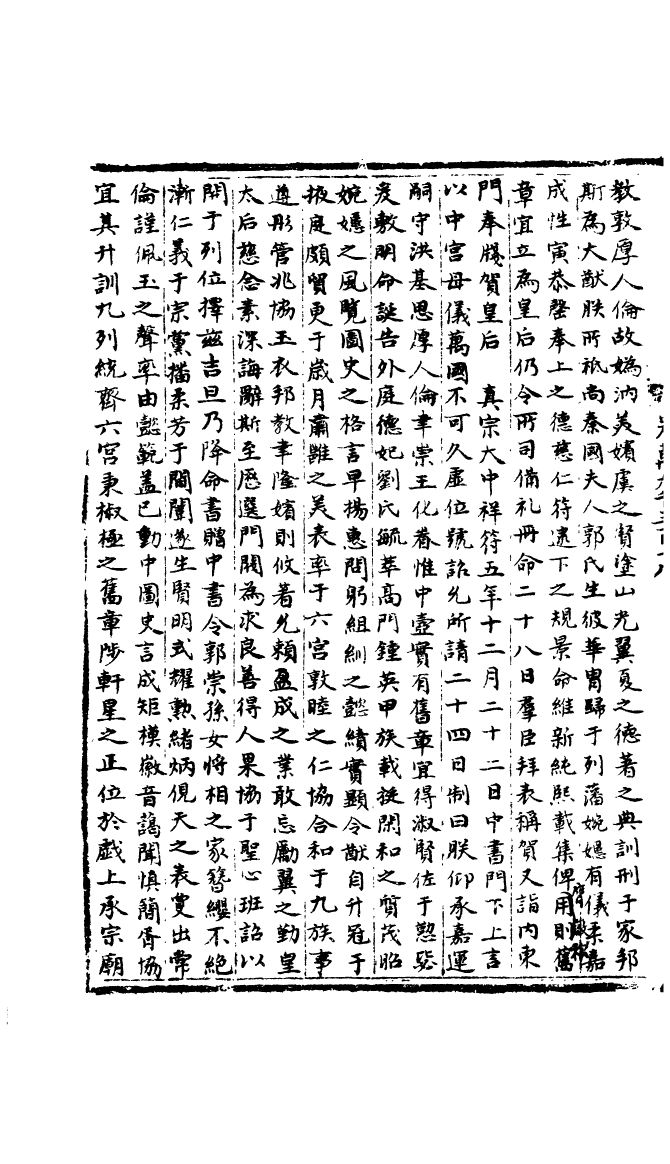 教敦厚人倫故媯汭美嬪虞之賢塗山光翼夏之德著之典訓刑于家邦
斯為大猷朕所祗尚秦國夫人郭氏生彼華冑歸于列藩婉嫕有儀柔嘉
成性寅恭罄奉上之德慈仁符逮下之規景命維新純熙載集俾用則舊
章宜立為皇后仍令所司備礼冊命二十八日羣臣拜表稱賀又詣内東
門奉牋賀皇后 真宗大中祥符五年十二月二十二日中書門下上言
以中宮母儀萬國不可久虛位號詔允所請二十四日制曰朕仰承嘉運
嗣守洪基思厚人倫聿崇王化眷惟中壼實有舊章宜得淑賢佐于懃毖
爰敷明命誕告外庭德妃劉氏毓萃高門鍾英甲族載挺閑和之質茂昭
婉嫕之風覽圖史之格言早揚惠問躬組紃之懿績實顯令猷自升冠于
掖庭頗貿更于歳月肅雝之美表率于六宮敦睦之仁協合和于九族事
遵彤管兆協玉衣邦教聿隆嬪則攸著允賴盈成之業敢忘勵翼之勤皇
太后慈念素深誨辭斯至歷選門閥為求良善得人果協于聖心班詔以
開于列位擇兹吉旦乃降命書贈中書令郭崇孫女將相之家簪纓不絶
漸仁義于宗黨播柔芳于閨閫遂生賢明式耀勲緒炳俔天之表夐出常
倫謹佩玉之聲率由懿範蓋已動中圖史言成矩模徽音藹聞慎簡胥協
宜其升訓九列統齊六宮秉椒極之舊章陟軒星之正位於戲上承宗廟